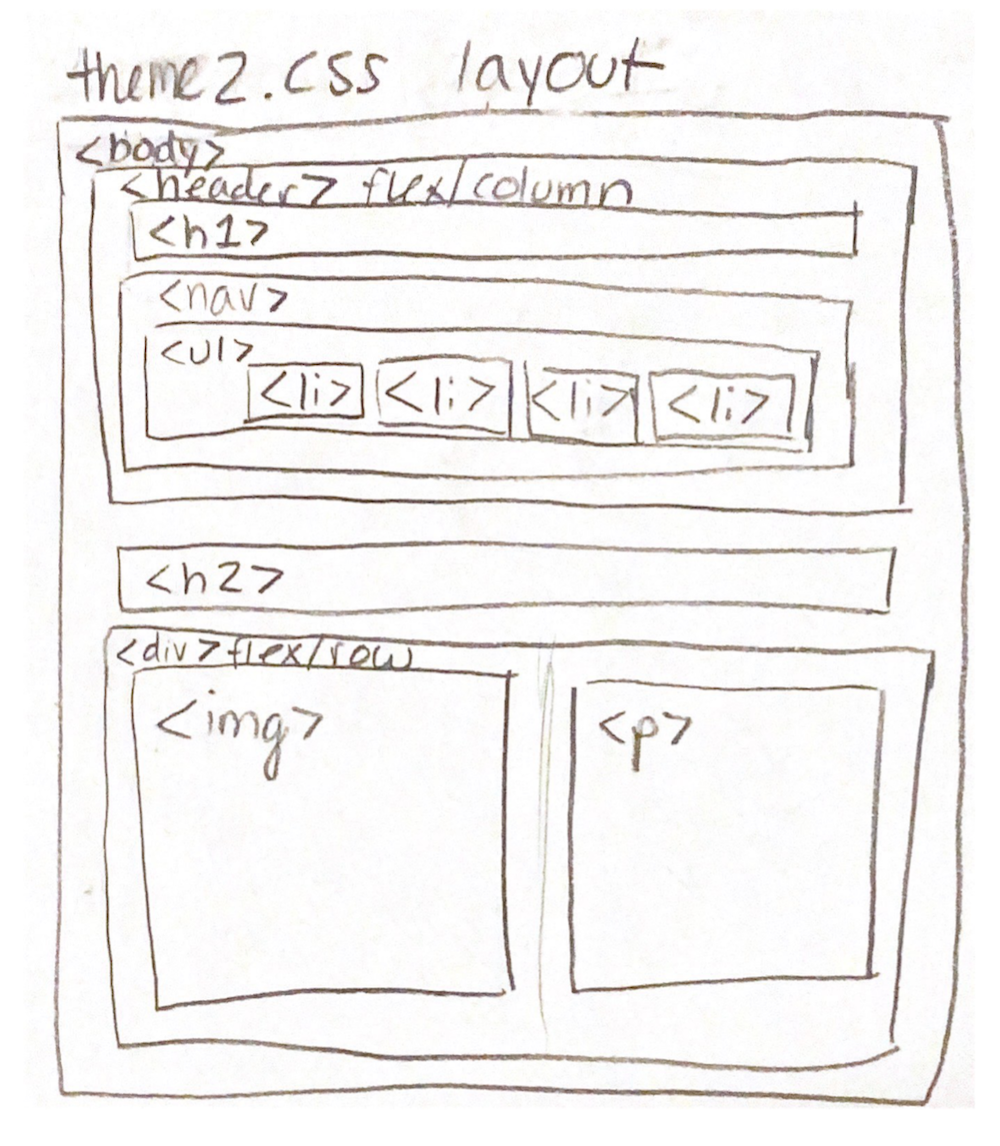 theme2.css layout
<body>
<header> flex/column
<h1>
<nav>
<ul>
<li> <li> <li> <li>
<h2>
<div> flex/row
<img> <p>